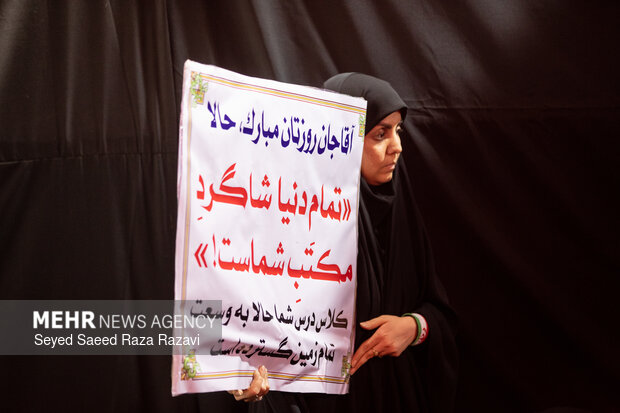 آقا جان روزتان مبارک، حالا
«تمام دنیا شاگردِ
مکتَبِ شماست!»
کلاس درس شما حالا به وسعت
تمام زمین گسترده است
MEHR NEWS AGENCY
Seyed Saeed Reza Razavi